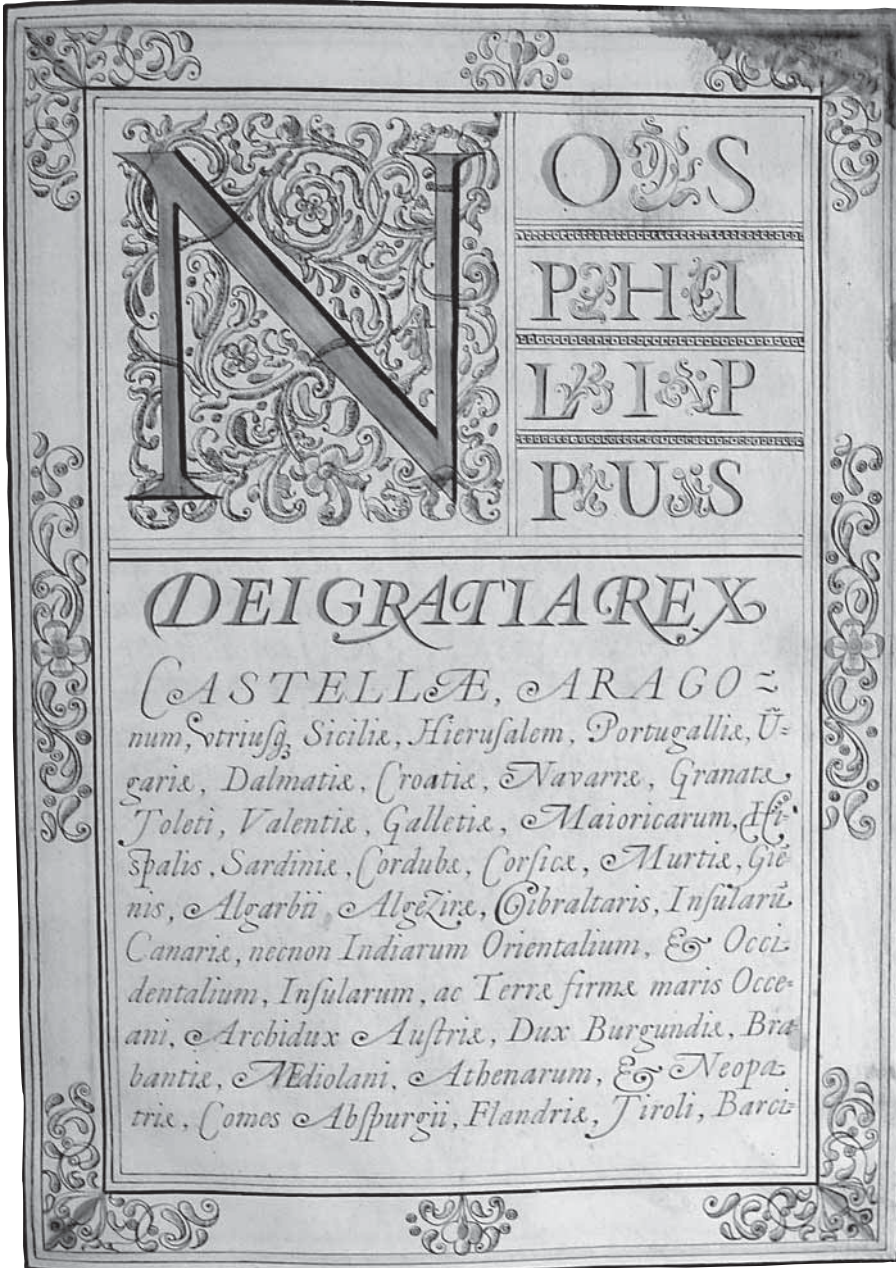 NOS
PHI
LIP
PUS
DEI GRATIA REX
CASTELLÆ, ARAGO=
num, vtriusq̨ Siciliæ, Hieruſalem, Portugalliæ, Ũ=
gariæ, Dalmatiæ, Croatiæ, Navarræ, Granatæ
Toleti, Valentiæ, Galletiæ, Maioricarum, Hi-
ſpalis, Sardiniæ, Cordubæ, Corſicæ, Murtiæ, Giẽ
nis, Algarbii, Algeziræ, Gibraltaris, Inſularũ
Canariæ, necnon Indiarum Orientalium, & Occi-
dentalium, Inſularum, ac Terræ firmæ maris Occe-
ani, Archidux Auſtriæ, Dux Burgundiæ, Bra-
bantiæ, Mediolani, Athenarum, & Neopa-
triæ, Comes Abſpurgii, Flandriæ, Tiroli, Barci=